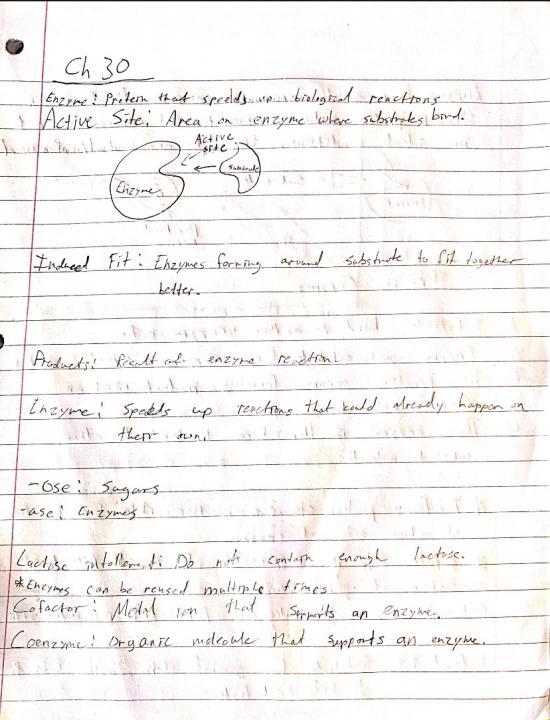 Ch 30
Enzyme: Protein that speeds up biological reactions
Active Site: Area on enzyme where substrates bind.
Active
site
Enzyme
Substrate
Induced Fit: Enzymes forming around substrate to fit together
better.
Products: Result of enzyme reaction
Enzyme: Speeds up reactions that could already happen on
their own.
-Ose: Sugars
-ase: Enzymes
Lactose intollerent: Do not contain enough lactose.
*Enzymes can be reused multiple times
Cofactor: Metal ion that supports an enzyme.
Coenzyme: Organic molecule that supports an enzyme.